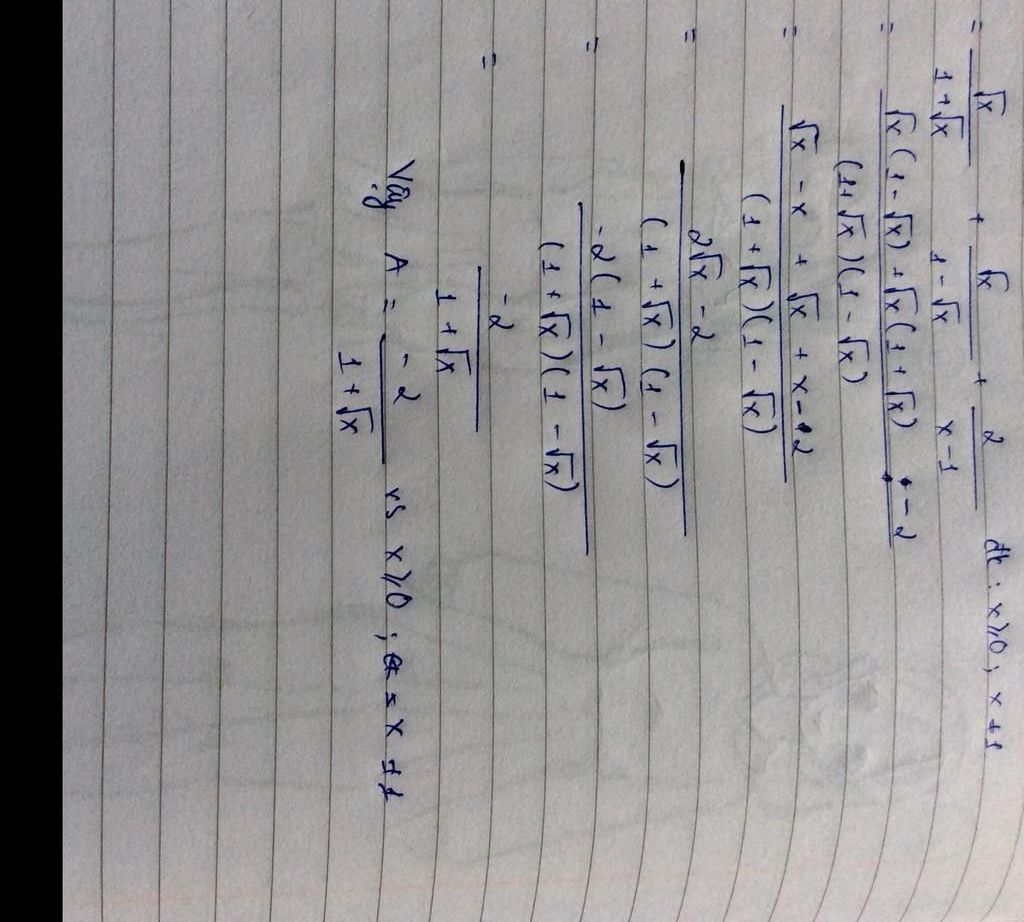 = √x / (1+√x) + √x / (1-√x) + 2 / (x-1) đk: x⩾0; x≠1
= (√x(1-√x)+√x(1+√x) -2) / ((1+√x)(1-√x))
= (√x -x + √x + x-2) / ((1+√x)(1-√x))
= (2√x -2) / ((1+√x)(1-√x))
= (-2(1-√x)) / ((1+√x)(1-√x))
= -2 / (1+√x)
Vậy A = -2 / (1+√x) vs x⩾0; x≠1